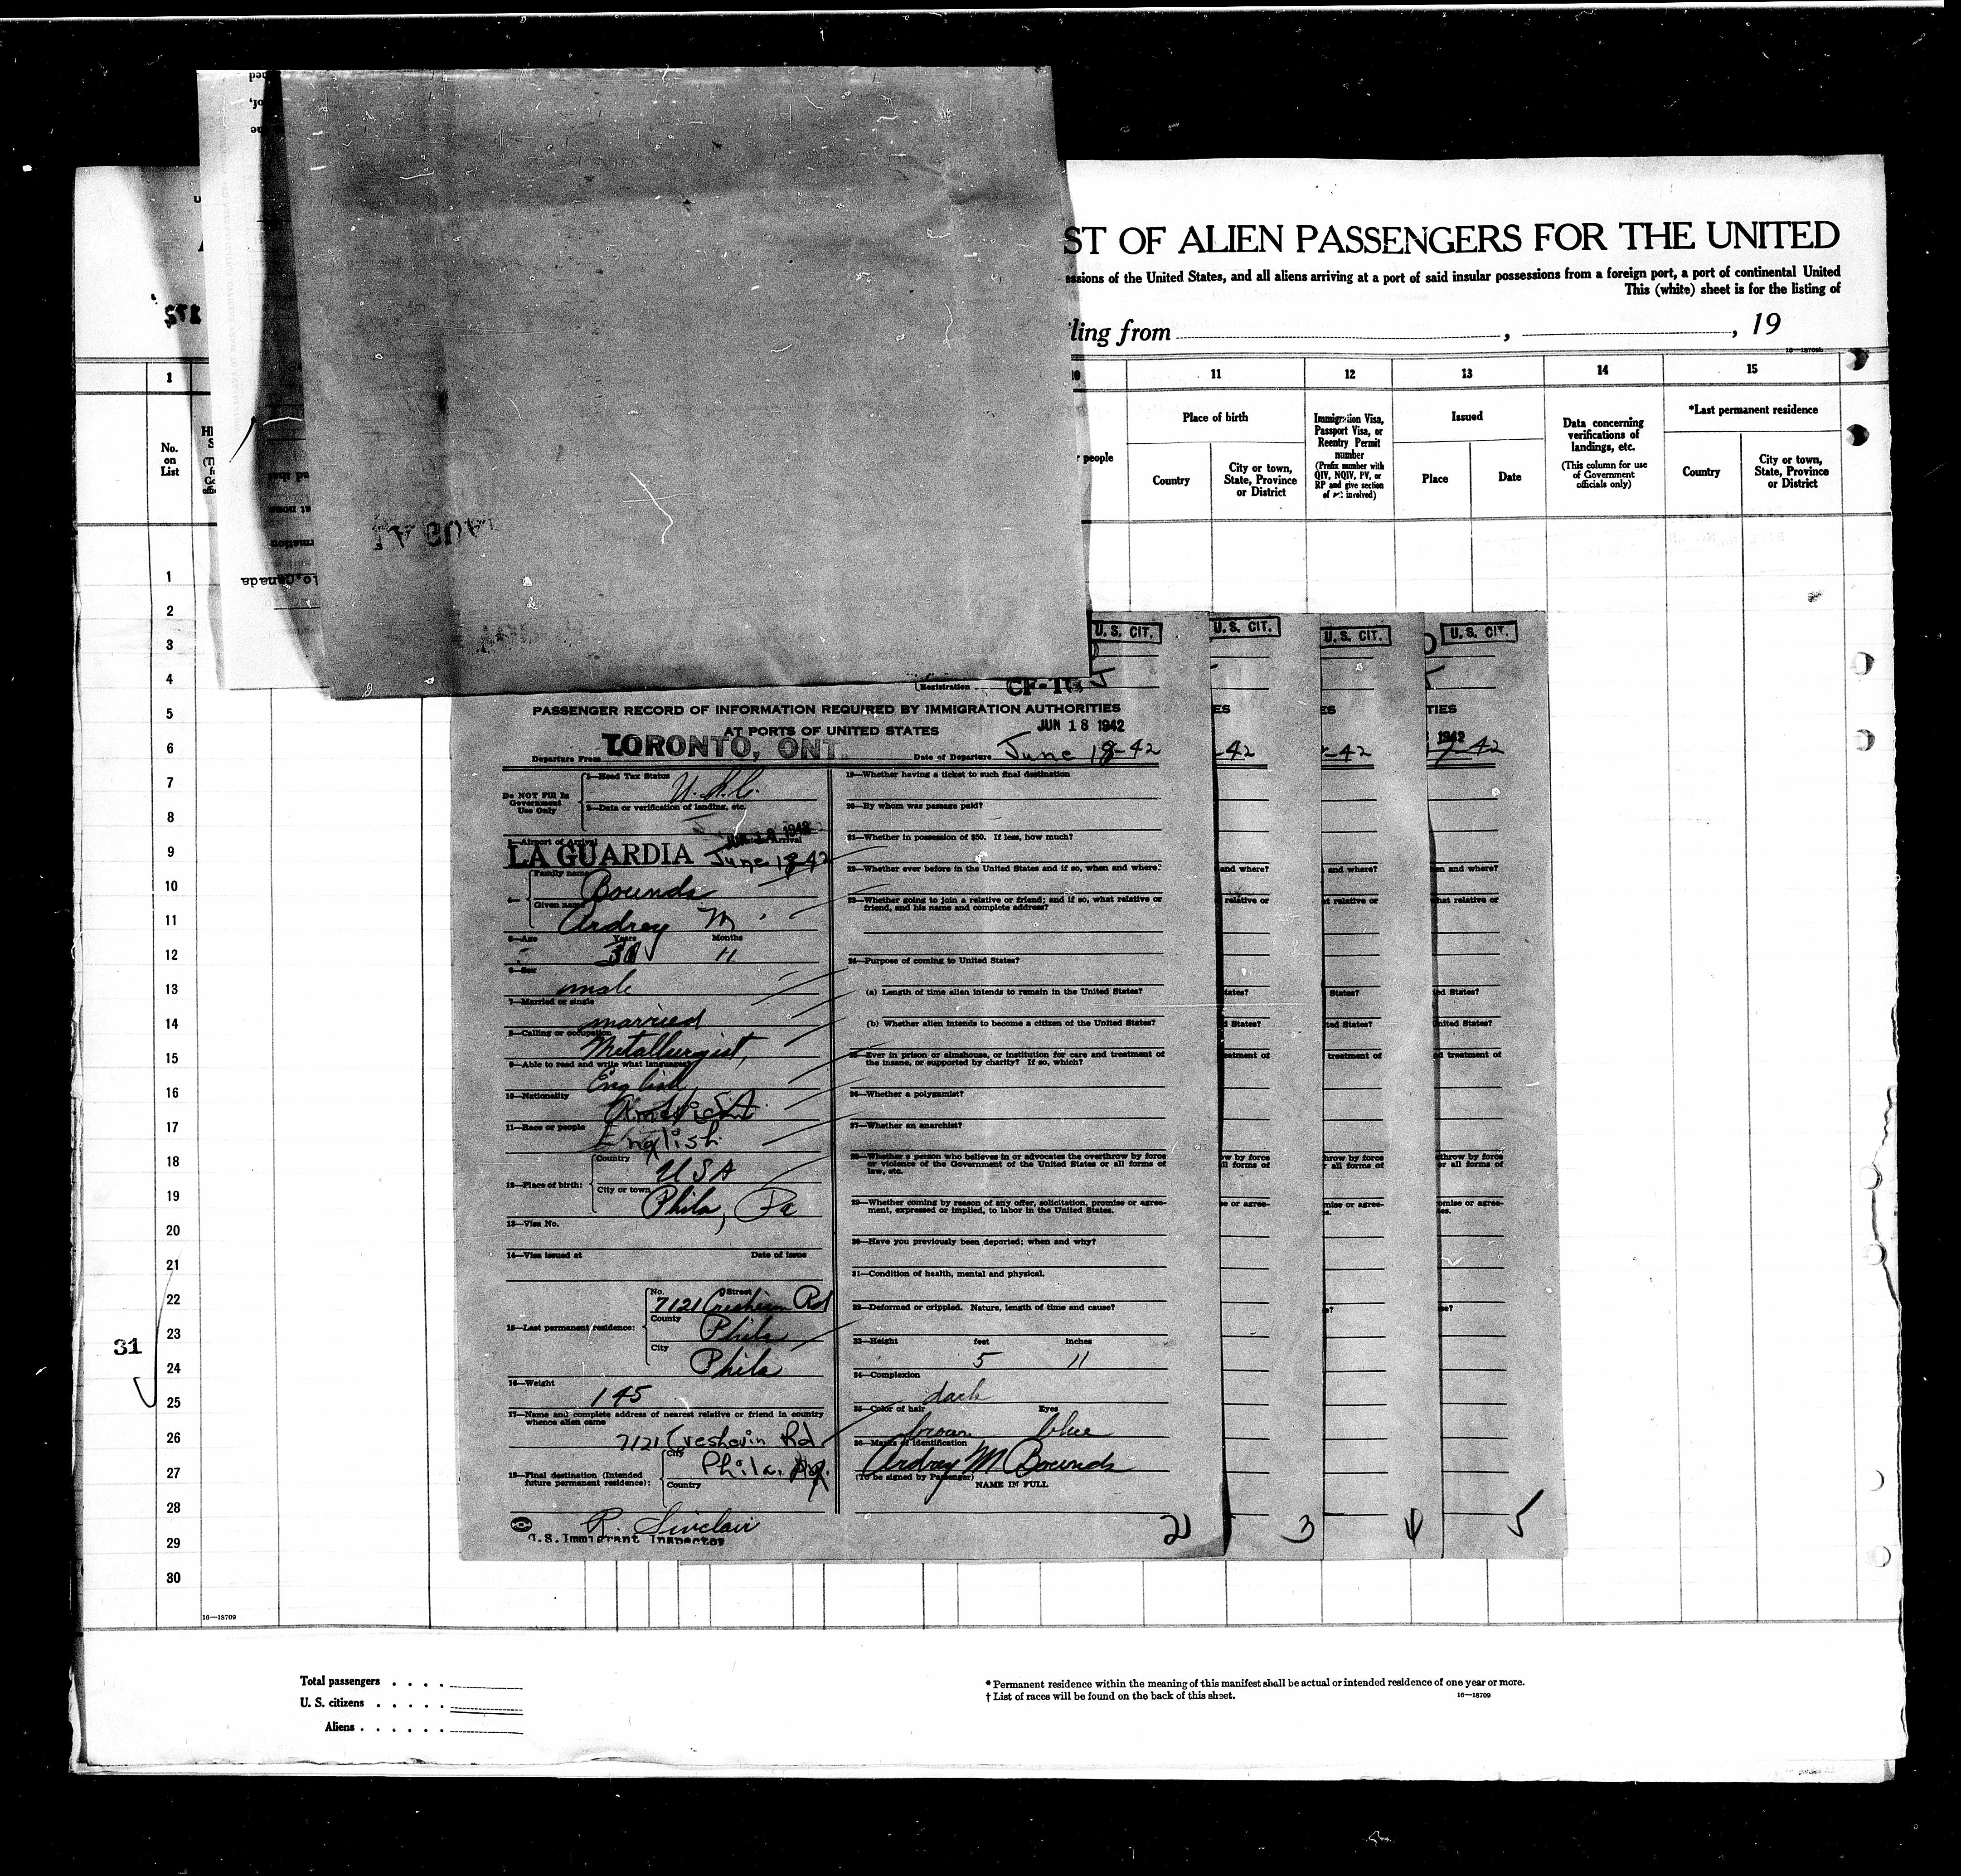 ST OF ALIEN PASSENGERS FOR THE UNITED
essions of the United States, and all aliens arriving at a port of said insular possessions from a foreign port, a port of continental United
This (white) sheet is for the listing of
ling from , , 19
16—18709b
1 10 11 12 13 14 15
No. on List
people
Place of birth
Country
City or town, State, Province or District
Immigration Visa, Passport Visa, or Reentry Permit number
(Prefix number with QIV, NQIV, PV, or RP and give section of act involved)
Issued
Place
Date
Data concerning verifications of landings, etc.
(This column for use of Government officials only)
*Last permanent residence
Country
City or town, State, Province or District
1
2
3
4
5
6
7
8
9
10
11
12
13
14
15
16
17
18
19
20
21
22
23
24
25
26
27
28
29
30
31
U. S. CIT.
U. S. CIT.
U. S. CIT.
U. S. CIT.
Registration
PASSENGER RECORD OF INFORMATION REQUIRED BY IMMIGRATION AUTHORITIES
AT PORTS OF UNITED STATES
JUN 18 1942
Departure From TORONTO, ONT.
Date of Departure June 18-42
Do NOT Fill In Government Use Only
1—Head Tax Status
2—Data or verification of landing, etc.
3—Airport of Arrival
JUN 18 1942
LA GUARDIA June 18 42
4—
Family name Bounds
Given name Ardrey M
5—Age Years Months 11
6—Sex
male
7—Married or single
married
8—Calling or occupation
Metallurgist
9—Able to read and write what languages
English
10—Nationality
11—Race or people
English
12—Place of birth:
Country USA
City or town Phila, Pa
13—Visa No.
14—Visa issued at Date of issue
15—Last permanent residence:
No. Street
7121 Cresheim Rd
County Phila
City Phila
16—Weight
145
17—Name and complete address of nearest relative or friend in country whence alien came
7121 Cresheim Rd
18—Final destination (Intended future permanent residence):
City Phila.
Country
R. Sinclair
U.S. Immigrant Inspector
19—Whether having a ticket to such final destination
20—By whom was passage paid?
21—Whether in possession of $50. If less, how much?
22—Whether ever before in the United States and if so, when and where?
23—Whether going to join a relative or friend; and if so, what relative or friend, and his name and complete address?
24—Purpose of coming to United States?
(a) Length of time alien intends to remain in the United States?
(b) Whether alien intends to become a citizen of the United States?
25—Ever in prison or almshouse, or institution for care and treatment of the insane, or supported by charity? If so, which?
26—Whether a polygamist?
27—Whether an anarchist?
28—Whether a person who believes in or advocates the overthrow by force or violence of the Government of the United States or all forms of law, etc.
29—Whether coming by reason of any offer, solicitation, promise or agreement, expressed or implied, to labor in the United States.
30—Have you previously been deported; when and why?
31—Condition of health, mental and physical.
32—Deformed or crippled. Nature, length of time and cause?
33—Height feet inches
5 11
34—Complexion
dark
35—Color of hair Eyes
brown blue
36—Marks of identification
Ardrey M Bounds
(To be signed by Passenger)
NAME IN FULL
2
3
4
5
16—18709
Total passengers . . . .
U. S. citizens . . . . .
Aliens . . . . . .
* Permanent residence within the meaning of this manifest shall be actual or intended residence of one year or more.
† List of races will be found on the back of this sheet.
16—18709